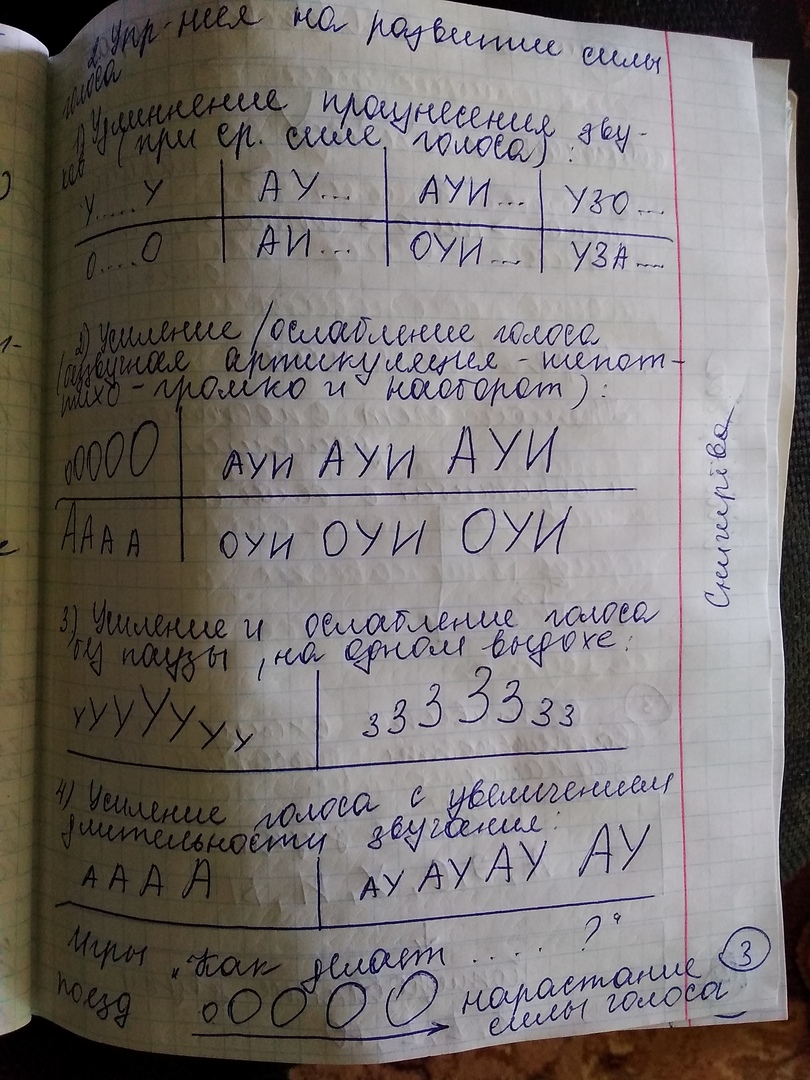 2. Упр-ния на развитие силы
голоса
1) Удлиннение працнесения зву-
ков (при ср. силе голоса):
У.....У | АУ... | АУИ... | УЗО...
О.....О | АИ... | ОУИ... | УЗА...
2) Усиление/ослабление голоса
(беззвучная артикуляция - шепот -
тихо - громко и наоборот):
ООООО | АУИ АУИ АУИ
АААА | ОУИ ОУИ ОУИ
3) Усиление и ослабление голоса
без паузы, на одном выдохе:
УУУУУУУ | ЗЗЗЗЗЗЗ
4) Усиление голоса с увеличением
длительности звучания:
А А А А | АУ АУ АУ АУ
Игры „Как делает ..... ?“
поезд ООООО нарастание
силы голоса
3